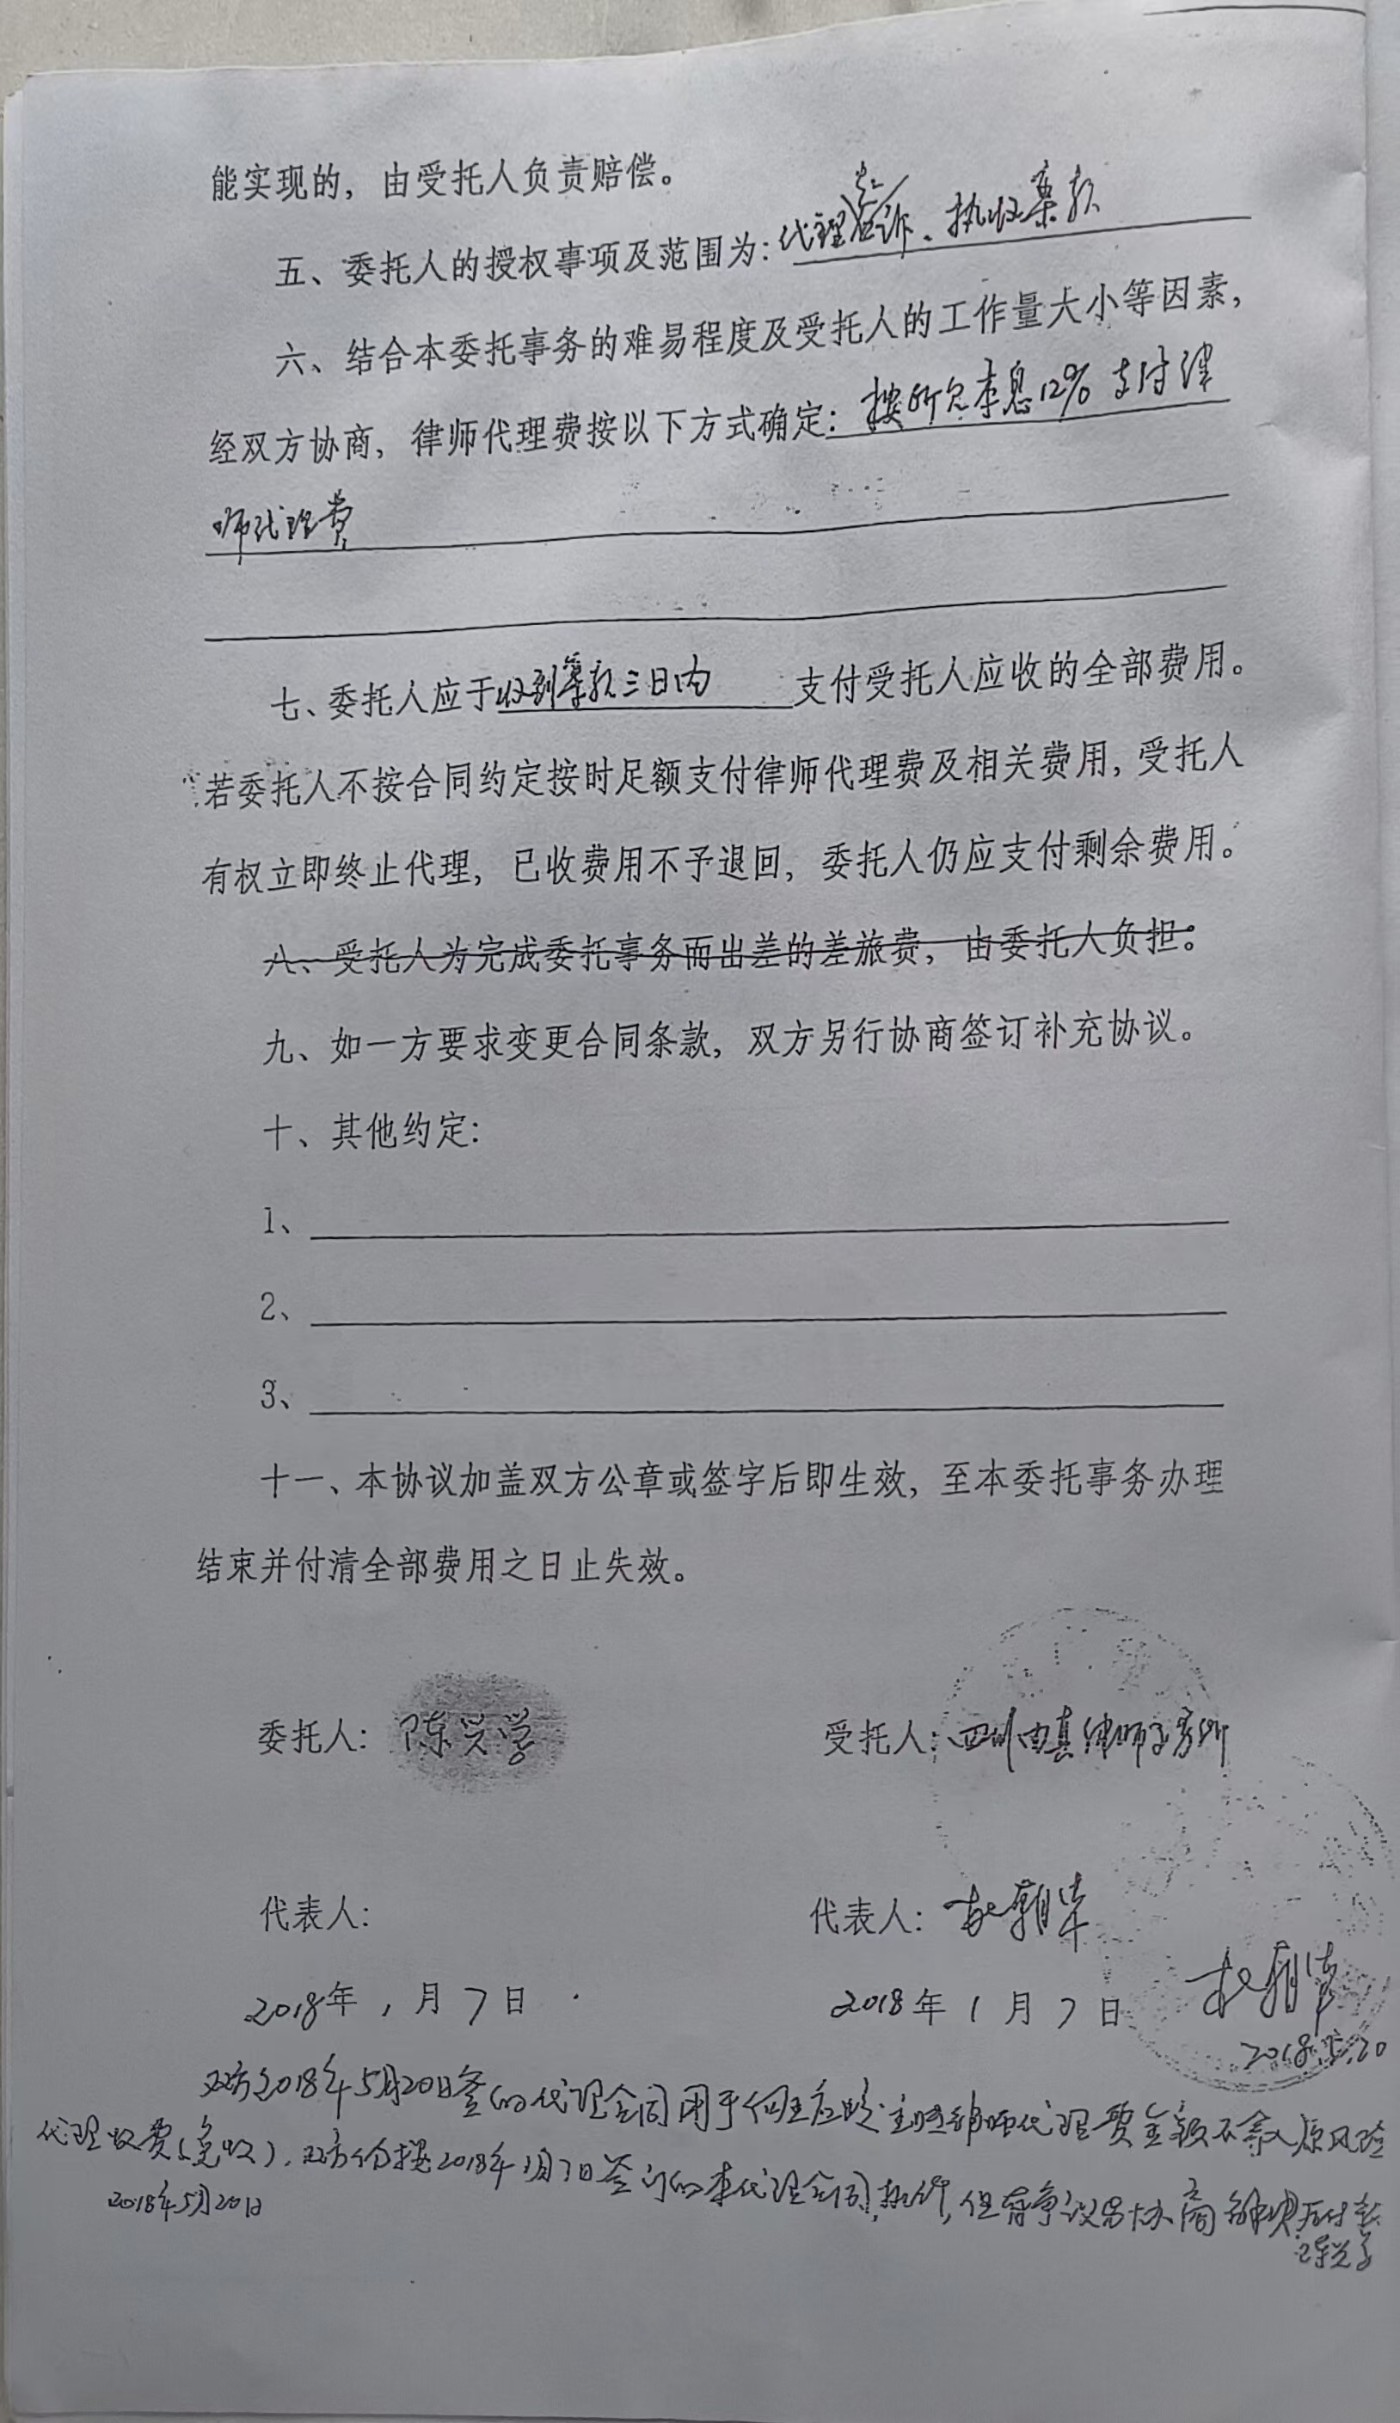 能实现的，由受托人负责赔偿。
五、委托人的授权事项及范围为：代理起诉、执收案款
六、结合本委托事务的难易程度及受托人的工作量大小等因素，
经双方协商，律师代理费按以下方式确定：按所欠本息12%支付律
师代理费
七、委托人应于收到案款三日内支付受托人应收的全部费用。
若委托人不按合同约定按时足额支付律师代理费及相关费用，受托人
有权立即终止代理，已收费用不予退回，委托人仍应支付剩余费用。
八、受托人为完成委托事务而出差的差旅费，由委托人负担。
九、如一方要求变更合同条款，双方另行协商签订补充协议。
十、其他约定：
1、
2、
3、
十一、本协议加盖双方公章或签字后即生效，至本委托事务办理
结束并付清全部费用之日止失效。
委托人：陈兴学 受托人：四川由真律师事务所
代表人： 代表人：杜朝华
2018年1月7日 2018年1月7日 杜朝华
2018.5.20
双方2018年5月20日签的代理合同用于向主张律师代理费金额不算入原风险
代理收费（免收），双方仍按2018年1月7日签订的本代理合同执行，但有争议另协商解决
2018年5月20日 陈兴学